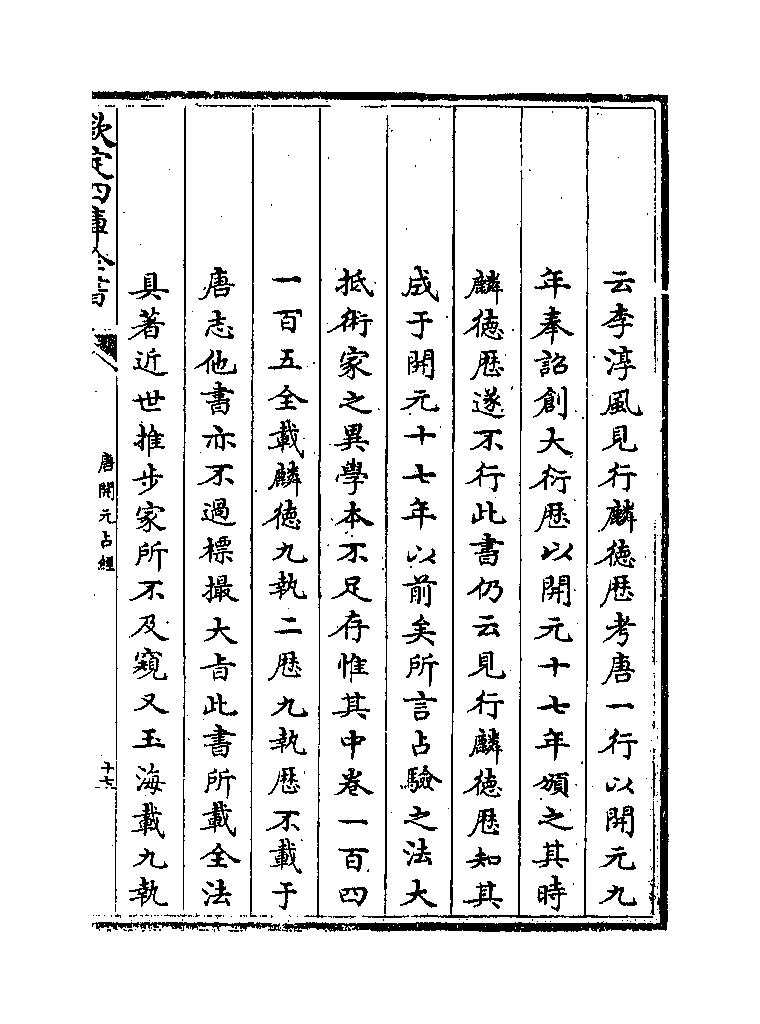 云李淳風見行麟徳厯考唐一行以開元九
年奉詔創大衍厯以開元十七年頒之其時
麟徳厯遂不行此書仍云見行麟徳厯知其
成于開元十七年以前矣所言占驗之法大
抵術家之異學本不足存惟其中卷一百四
一百五全載麟徳九執二厯九執厯不載于
唐志他書亦不過標撮大㫖此書所載全法
具著近世推步家所不及窺又玉海載九執
欽定四庫全書
唐開元占經
十七